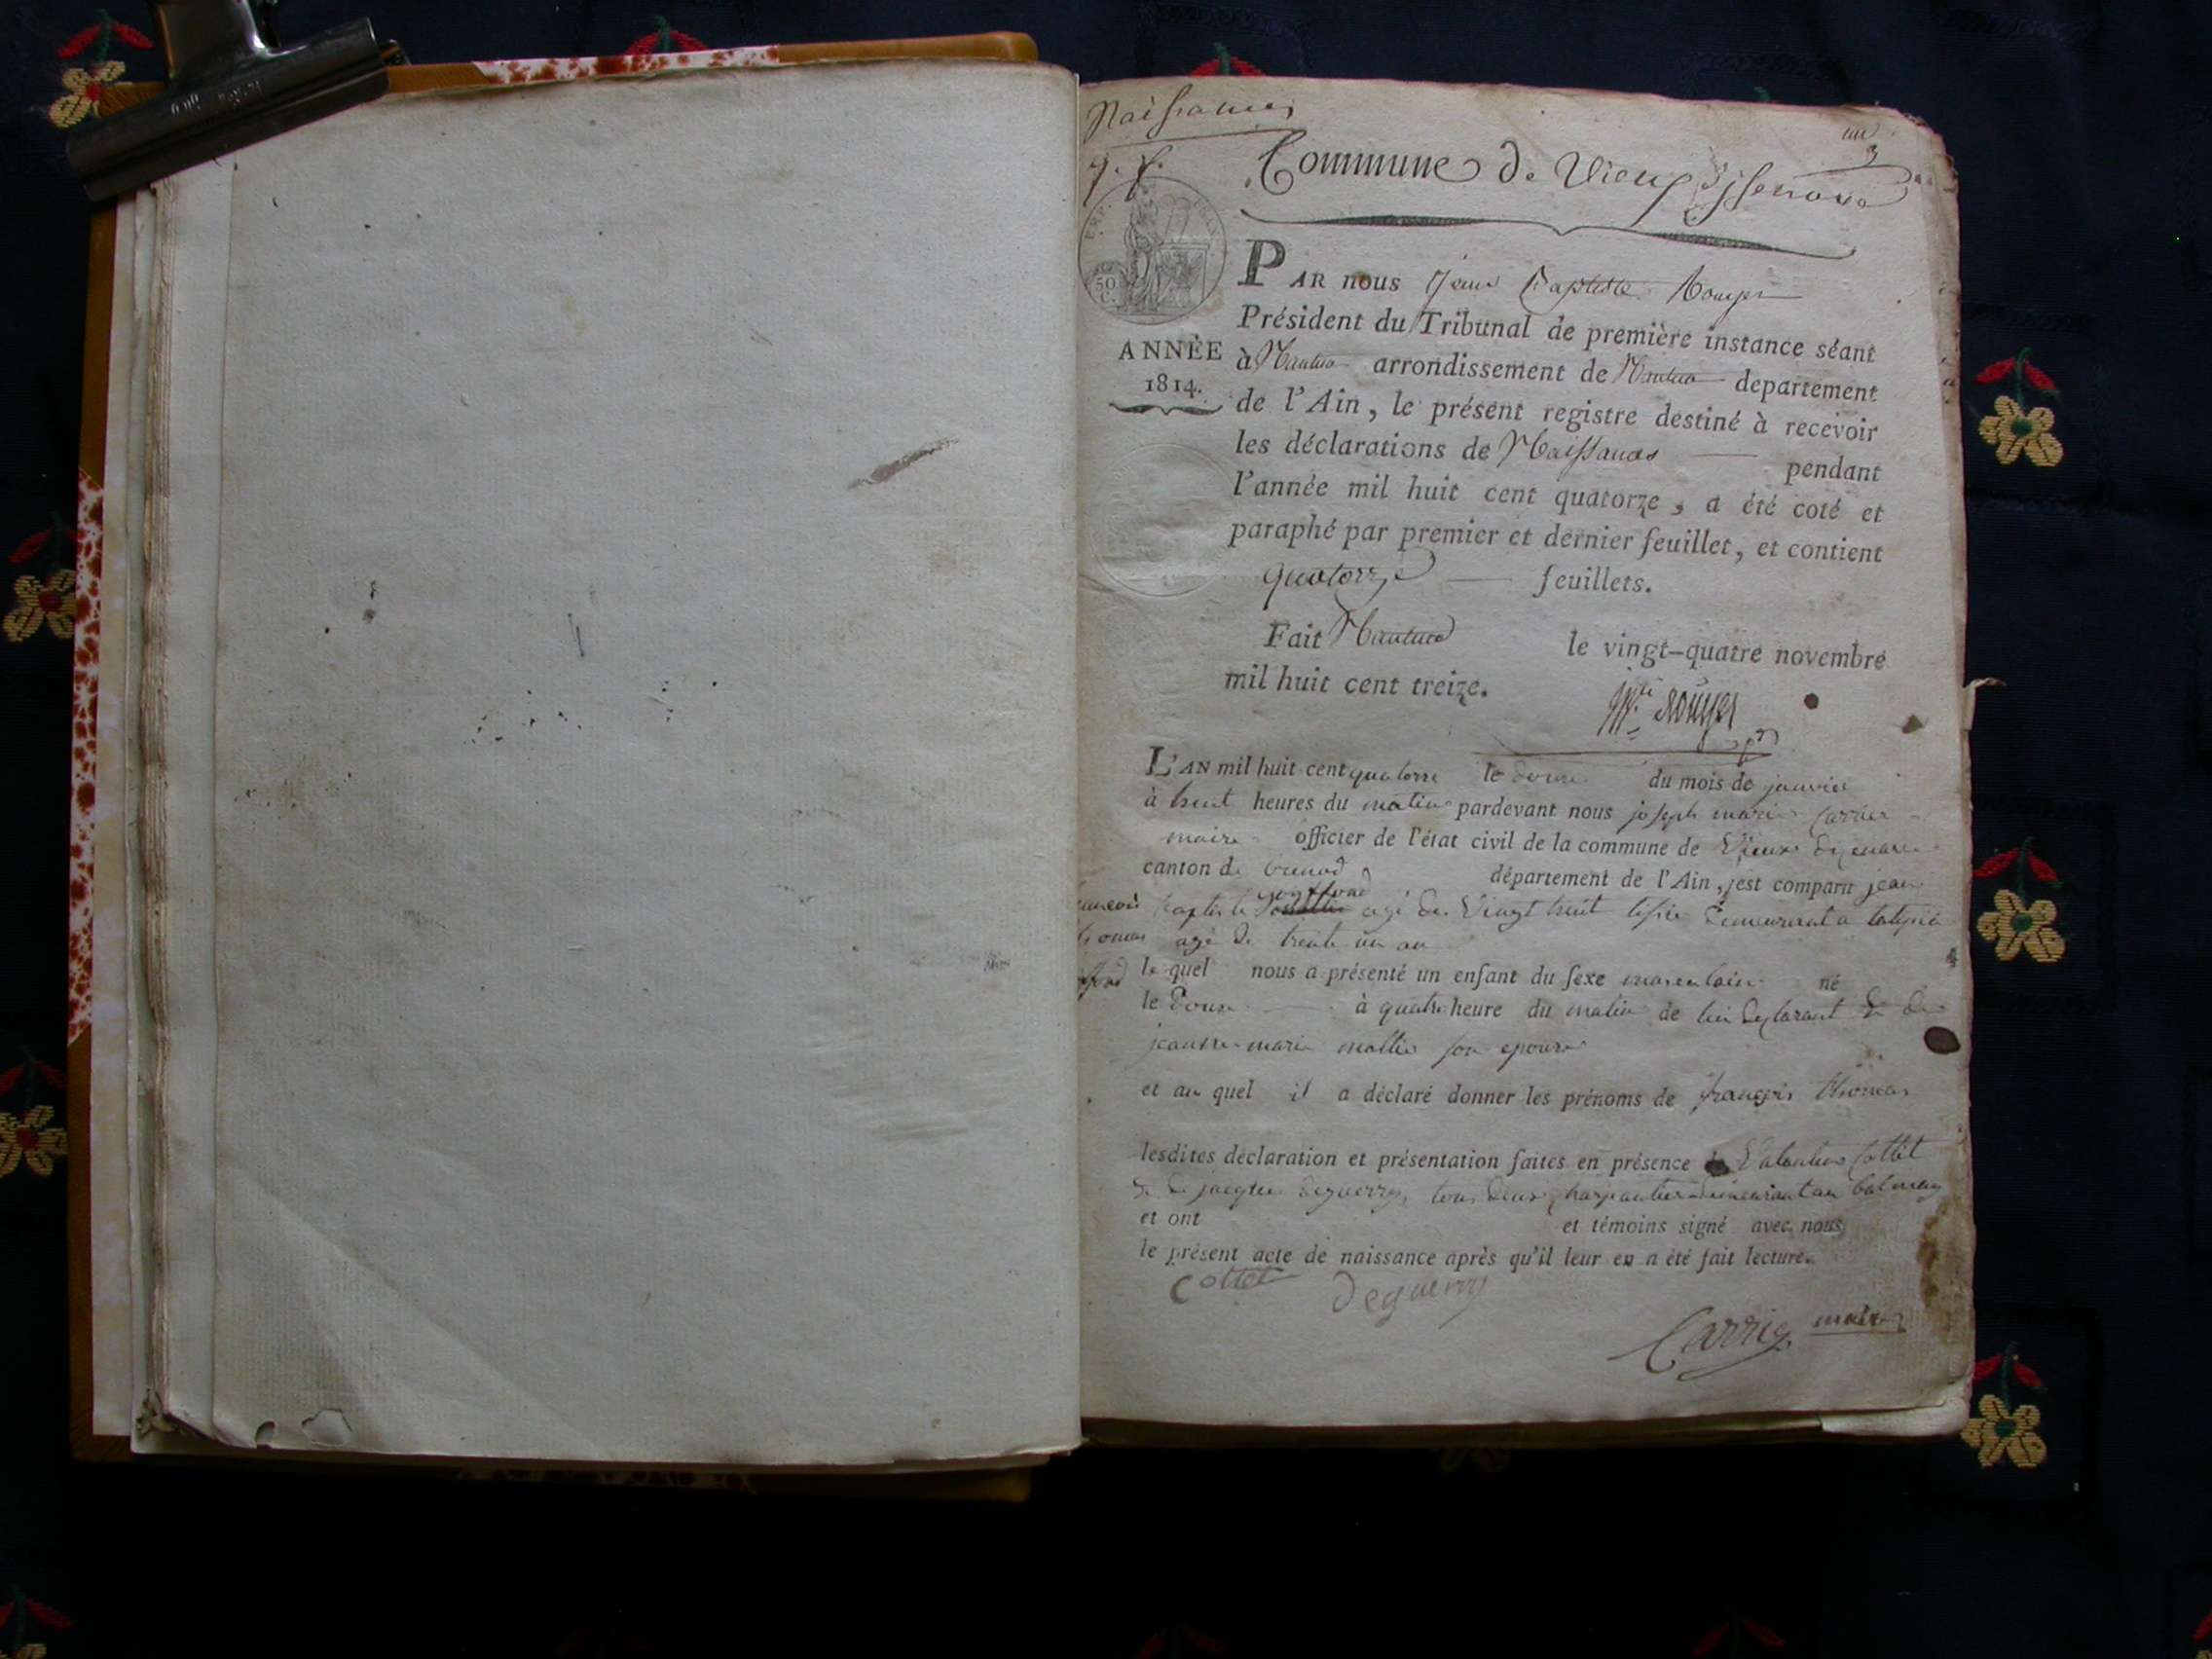 Naissances
Commune de Vieux
un
EMP. FRAN.
50 C.
ANNÉE
1814.
PAR nous Jean Baptiste Rouyer
Président du Tribunal de première instance séant
à Nantua arrondissement de Nantua departement
de l'Ain, le présent registre destiné à recevoir
les déclarations de Naissances pendant
l'année mil huit cent quatorze, a été coté et
paraphé par premier et dernier feuillet, et contient
quatorze feuillets.
Fait Nantua le vingt-quatre novembre
mil huit cent treize.
Rouyer
L'AN mil huit cent quatorze le douze du mois de janvier
à huit heures du matin pardevant nous joseph marie Carrier
maire officier de l'état civil de la commune de Vieux
canton de brenod département de l'Ain, est comparu jean
baptiste agé de Vingt huit demeurant a
agé de trente un an
le quel nous a présenté un enfant du sexe masculain né
le douze à quatre heure du matin de lui declarant et de
jeanne marie son epouse
et au quel il a déclaré donner les prénoms de françois thomas
lesdites déclaration et présentation faites en présence de Valentin Cottet
& de jacque deguerry, tous deux charpantier demeurant au balmay
et ont et témoins signé avec nous
le présent acte de naissance après qu'il leur en a été fait lecture.
Cottet deguerry
Carrier maire